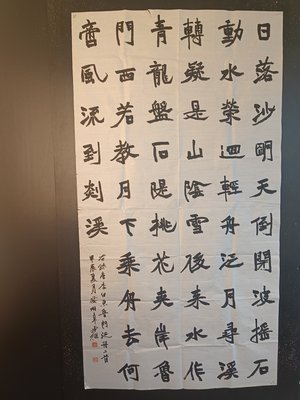 日落沙明天倒開波搖石
動水縈迴輕舟泛月尋溪
轉疑是山陰雪後来水作
青龍盤石隄桃花夾岸魯
門西若教月下乘舟去何
啻風流到剡溪
右錄唐李白東魯門泛舟二首
甲辰夏月